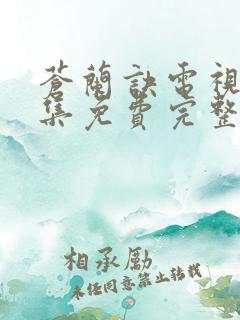 蒼蘭訣電視
集免費完整
相承勵
未经同意禁止转载